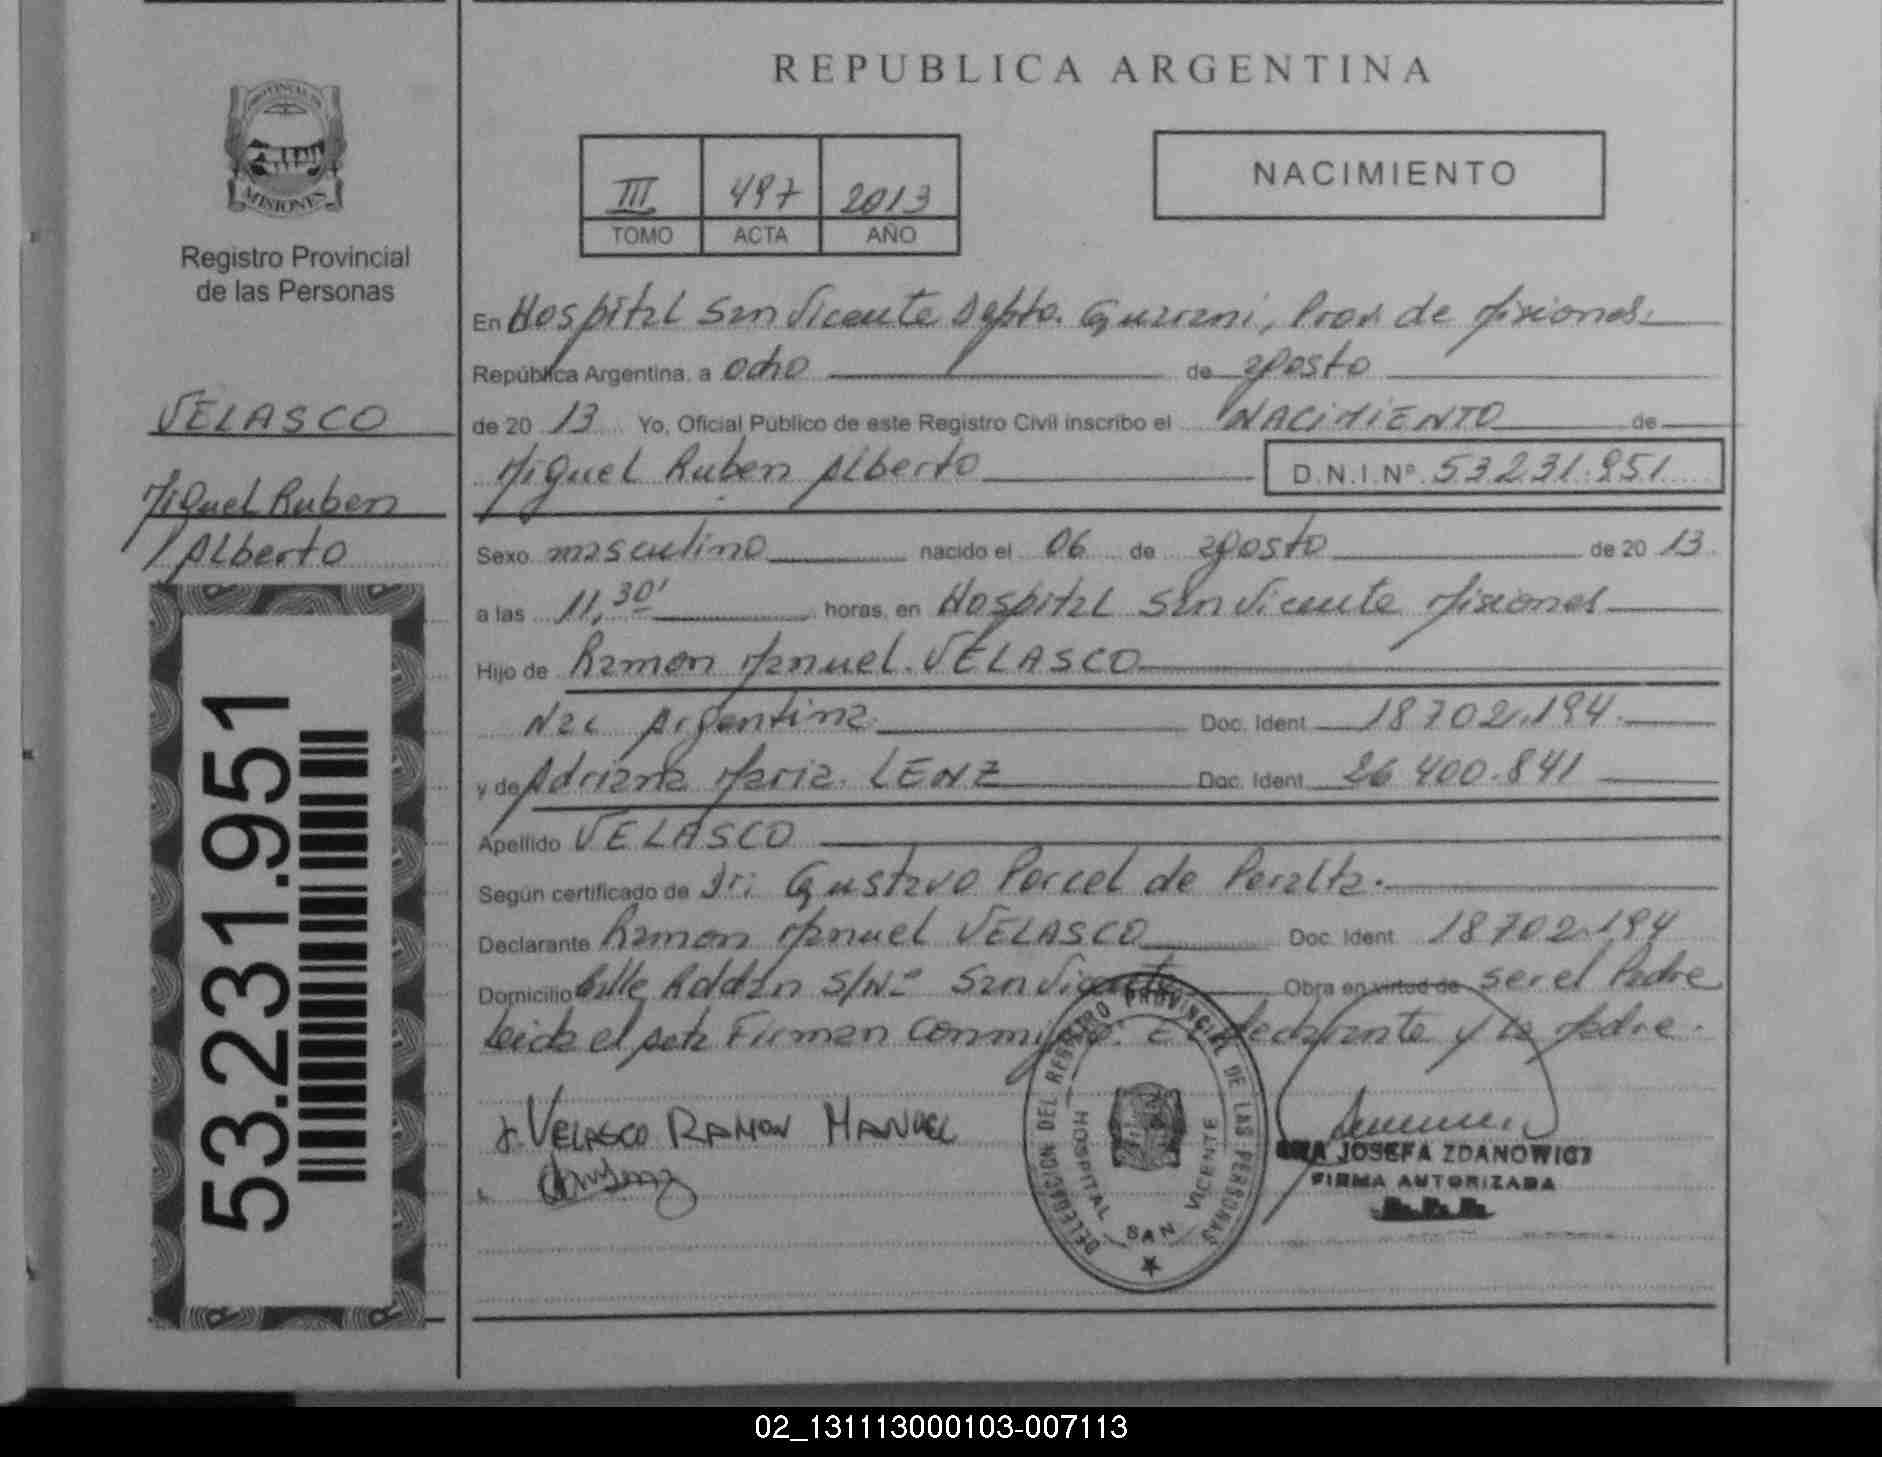 REPUBLICA ARGENTINA
PROVINCIA DE
MISIONES
Registro Provincial
de las Personas
III 497 2013
TOMO ACTA AÑO
NACIMIENTO
VELASCO
Miguel Ruben
Alberto
53.231.951
En Hospital San Vicente Depto. Guarani, Prov. de Misiones.
República Argentina, a ocho de agosto
de 20 13 Yo, Oficial Público de este Registro Civil inscribo el NACIMIENTO de
Miguel Ruben Alberto D.N.I.Nº 53231.951
Sexo masculino nacido el 06 de agosto de 20 13
a las 11,30' horas, en Hospital San Vicente Misiones
Hijo de Ramon Manuel VELASCO
Nac Argentina Doc. Ident 18702.194
y de Adriana Maria LENZ Doc. Ident 26 400.841
Apellido VELASCO
Según certificado de Dr: Gustavo Porcel de Peralta.
Declarante Ramon Manuel VELASCO Doc. Ident 18702.194
Domicilio Calle Roldan S/Nº San Vicente Obra en virtud de ser el Padre
Leida el acta Firman Conmigo: El declarante y la Madre.
VELASCO RAMON MANUEL
DELEGACION DEL REGISTRO PROVINCIAL DE LAS PERSONAS
HOSPITAL SAN VICENTE
JOSEFA ZDANOWICZ
FIRMA AUTORIZADA
02_131113000103-007113